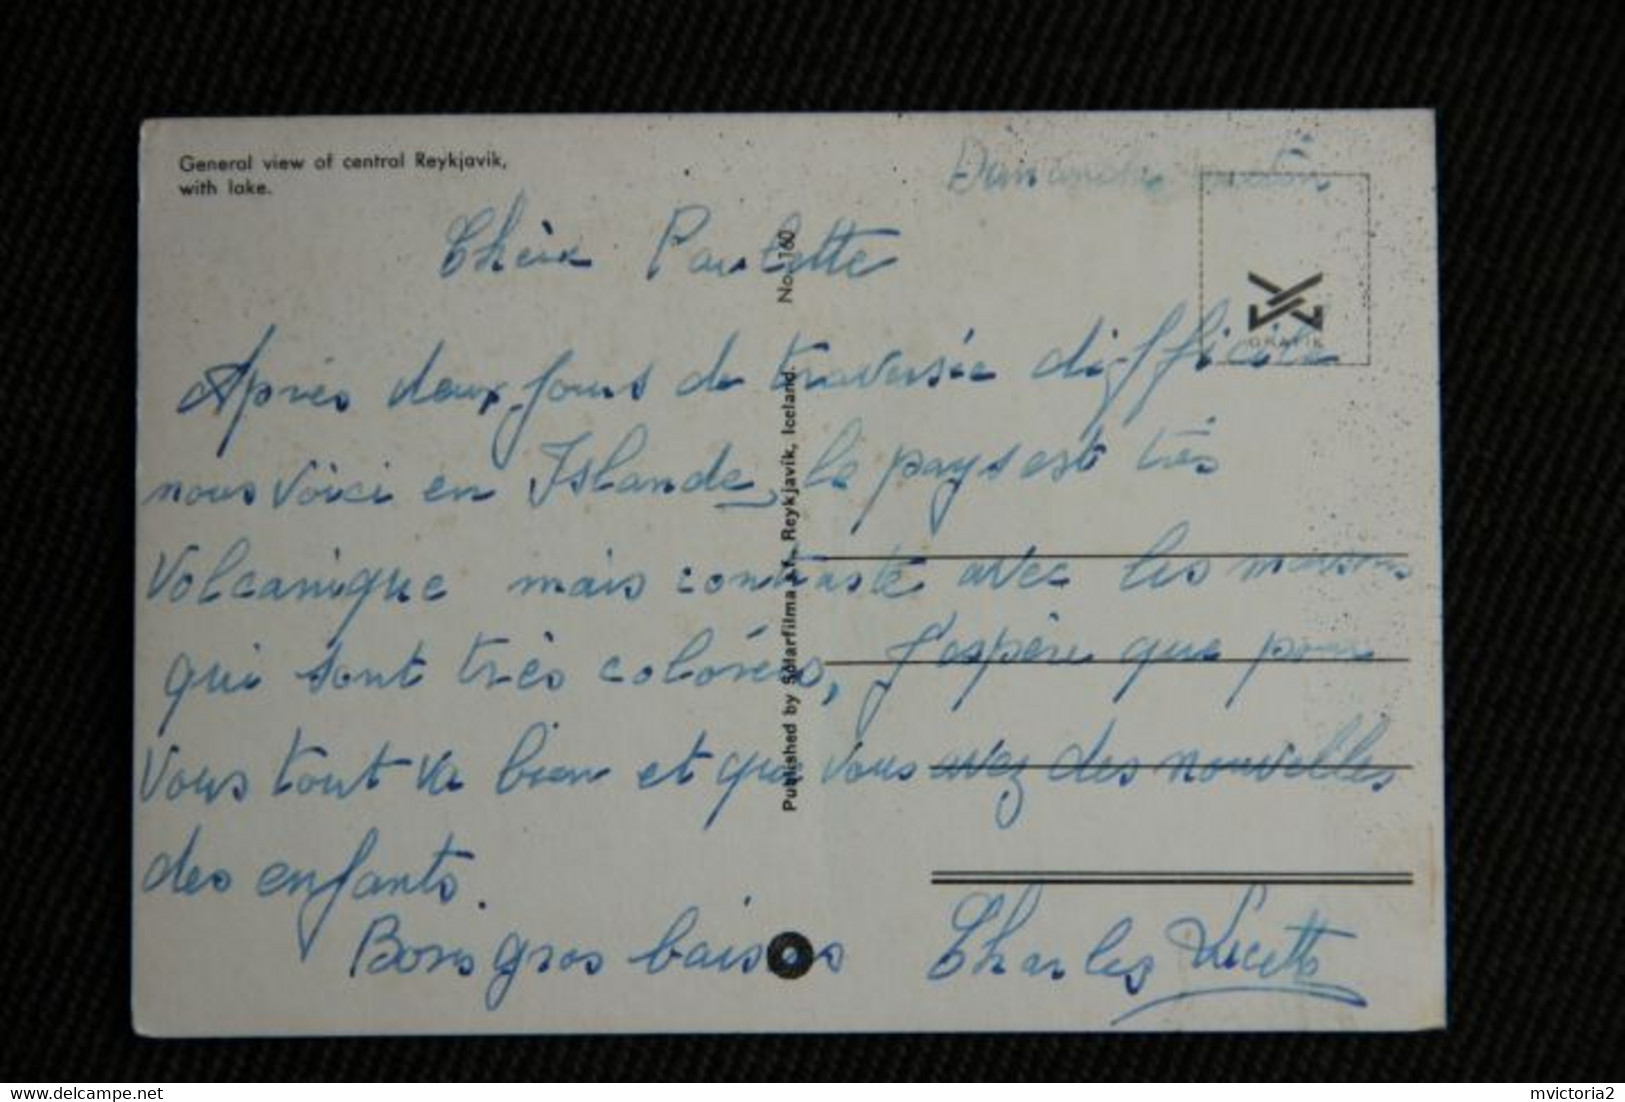 General view of central Reykjavik,
with lake.
Dimanche matin
Chère Paulette
Après deux jours de traversée difficile
nous voici en Islande, le pays est très
volcanique mais contraste avec les maisons
qui sont très colorées, J'espère que pour
vous tout va bien et que vous avez des nouvelles
des enfants.
Bons gros baisers Charles Lucette
Published by Sólarfilma s.f., Reykjavík, Iceland. No. 160
GRAFÍK
mvictoria2